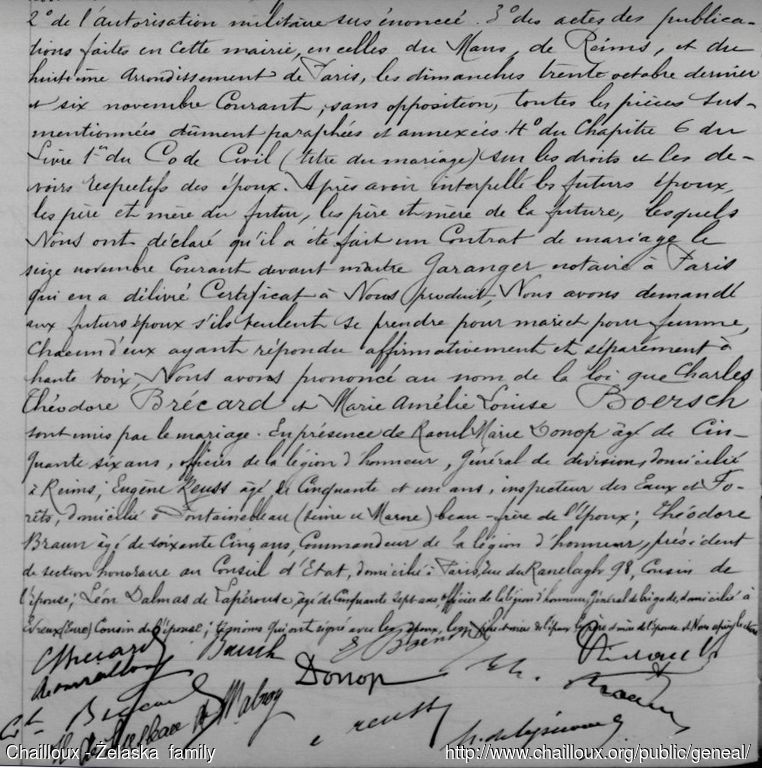 2° de l'autorisation militaire sus énoncée 3° des actes des publica-
tions faites en cette mairie, en celles du Mans, de Reims, et du
huitième arrondissement de Paris, les dimanches trente octobre dernier
et six novembre Courant, sans opposition, toutes les pièces sus-
mentionnées dûment paraphées et annexées. 4° du Chapitre 6 du
Livre 1er du Code Civil (titre du mariage) sur les droits et les de-
voirs respectifs des époux. Après avoir interpellé les futurs époux,
les père et mère du futur, les père et mère de la future, lesquels
Nous ont déclaré qu'il a été fait un Contrat de mariage le
seize novembre Courant devant maitre Garanger notaire à Paris
qui en a délivré Certificat à Nous produit, Nous avons demandé
aux futurs époux s'ils veulent se prendre pour mari et pour femme,
Chacun d'eux ayant répondu affirmativement et séparément à
haute voix, Nous avons prononcé au nom de la loi que Charles
Théodore Brécard et Marie Amélie Louise Boersch
sont unis par le mariage. En présence de Raoul Marie Donop âgé de Cin-
quante six ans, officier de la légion d'honneur, Général de division, domicilié
à Reims; Eugène Reuss âgé de Cinquante et un ans, inspecteur des Eaux et Fo-
rêts, domicilié à Fontainebleau (Seine et Marne) beau-frère de l'époux; Théodore
Braun âgé de soixante Cinq ans, Commandeur de la légion d'honneur, président
de section honoraire au Conseil d'Etat, domicilié à Paris, rue de Ranelagh 98, Cousin de
l'épouse; Léon Dalmas de Lapérouse âgé de Cinquante sept ans officier de la légion d'honneur, Général de brigade, domicilié à
Evreux (Eure) Cousin de l'épouse; témoins qui ont signé avec les époux, les père et mère de l'époux, les père et mère de l'épouse et Nous après lecture
CBrecard Boersch E Boersch
Donop Th. Braun
Gl Brecard
E reuss
Chailloux - Żelaska family http://www.chailloux.org/public/geneal/